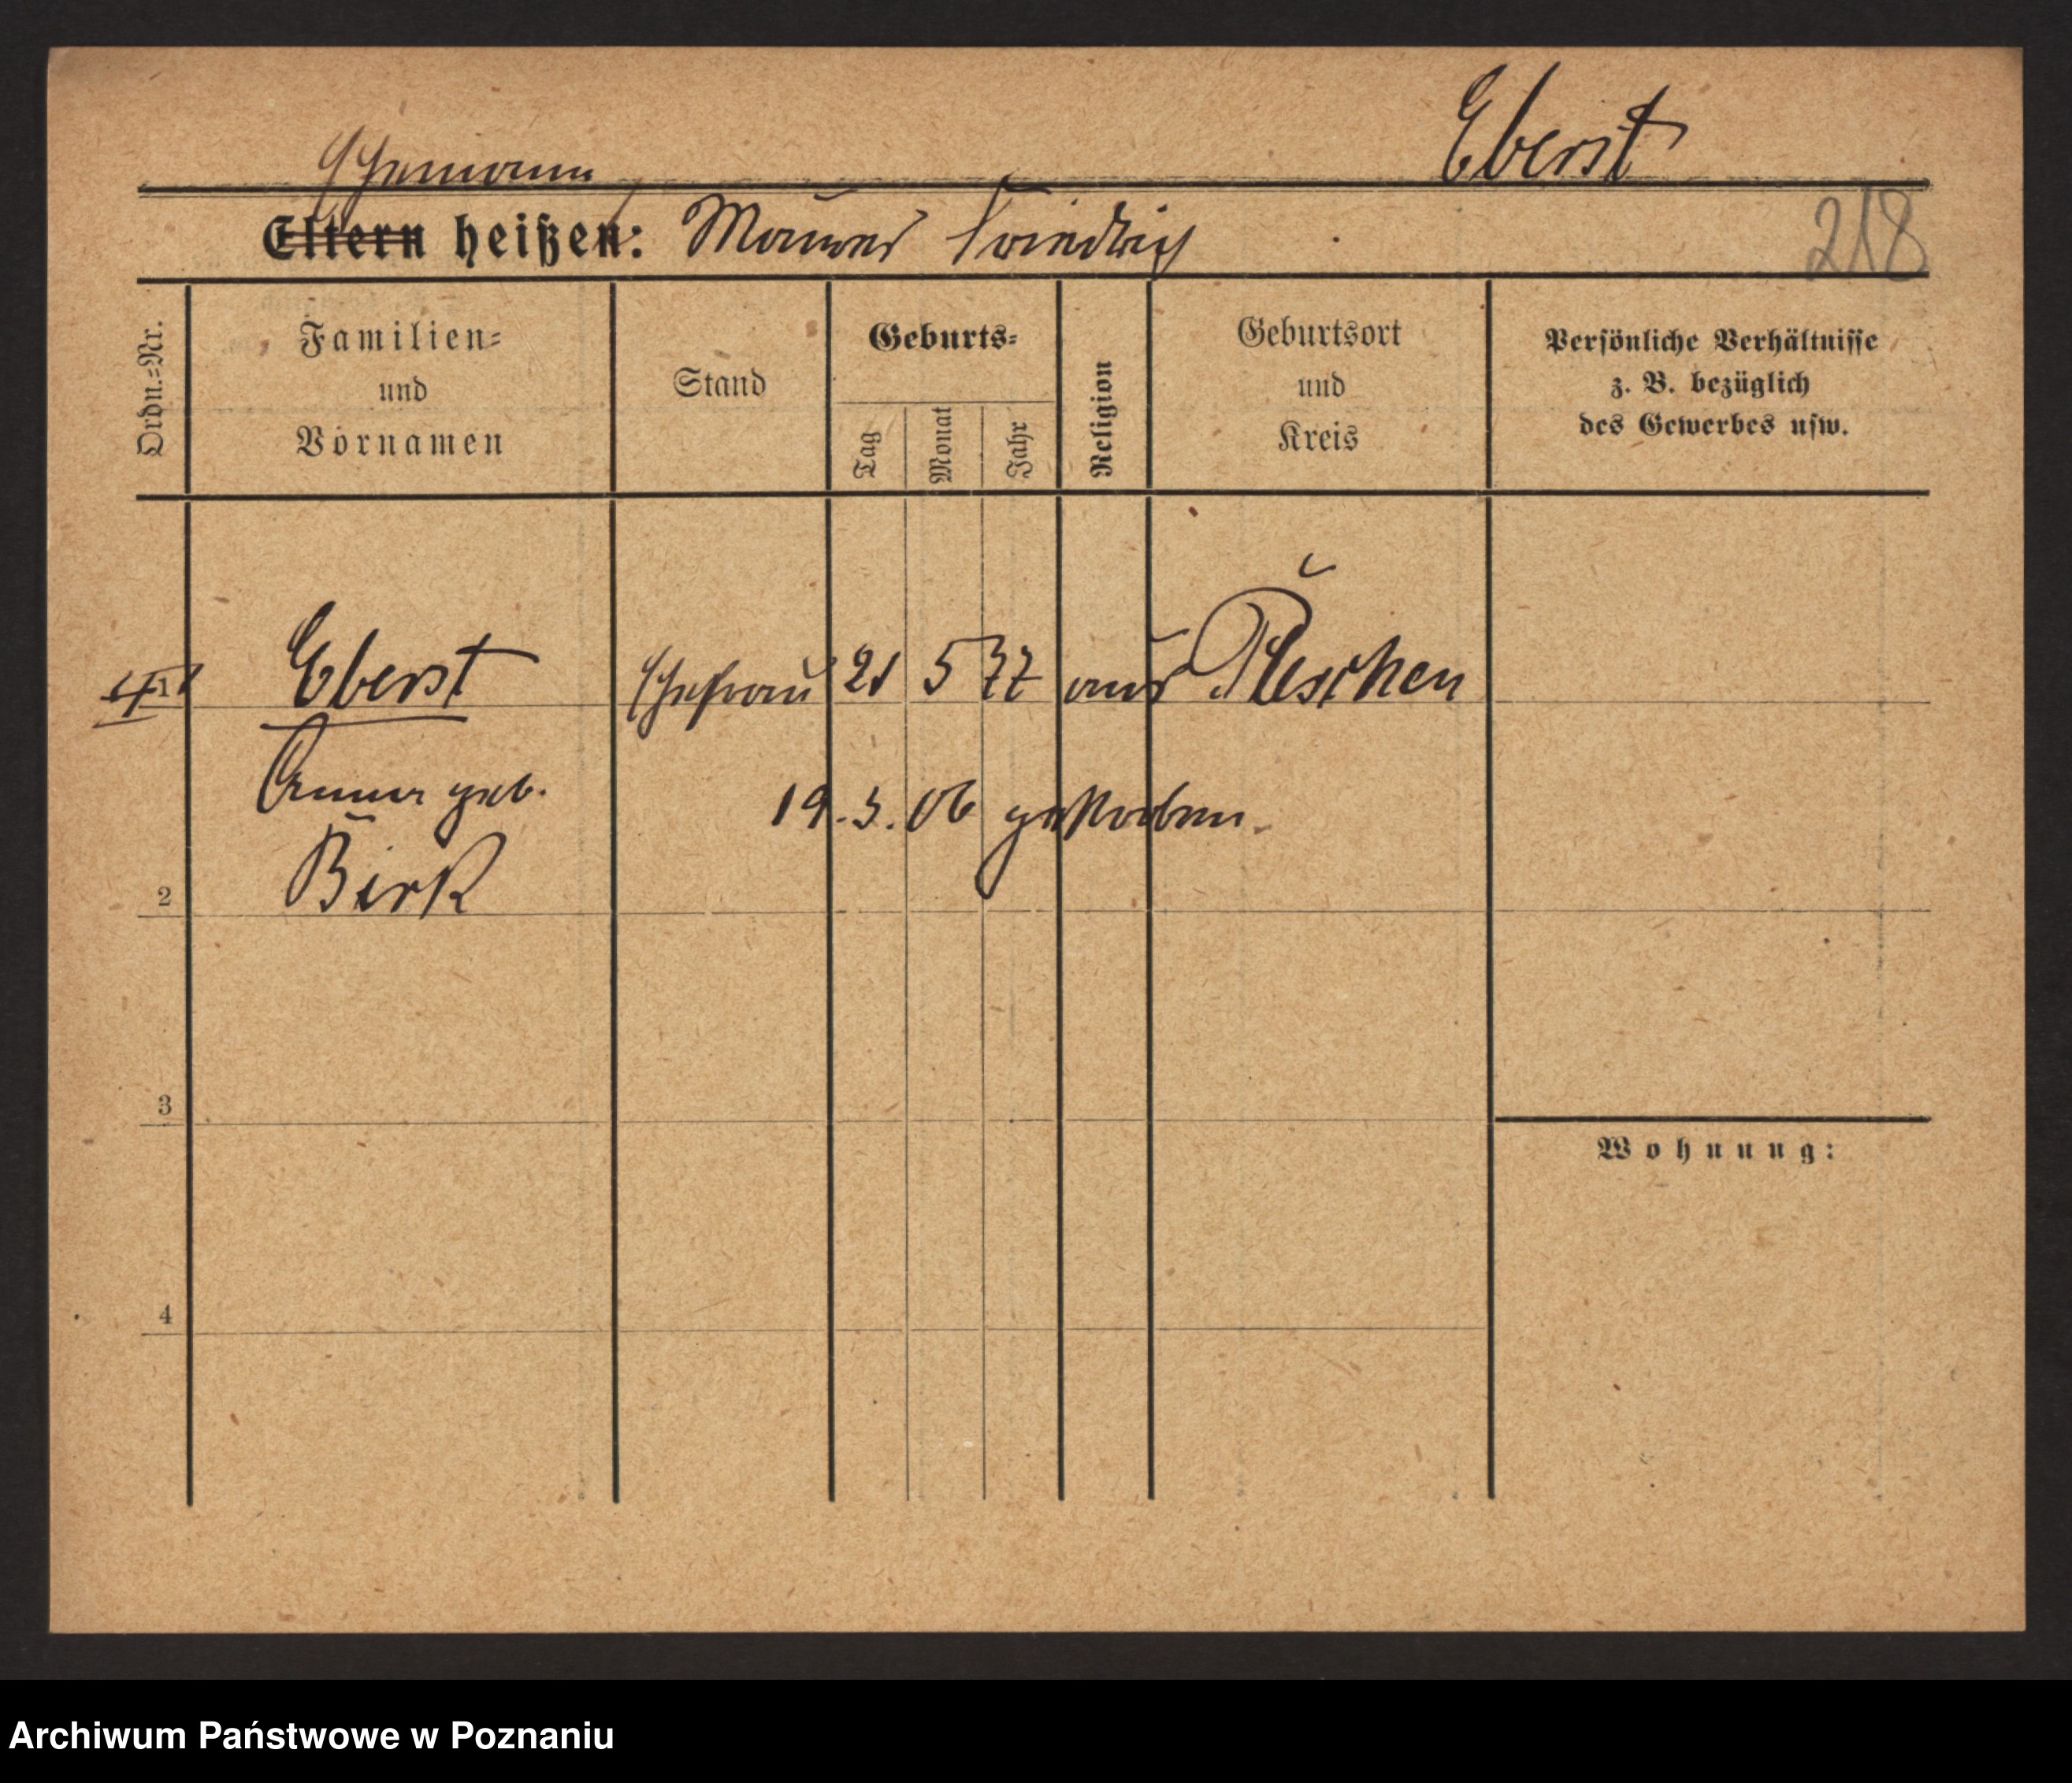 Eberst
Ehemann
Eltern heißen: Maurer Friedrich
218
Ordn.-Nr.
Familien-
und
Vornamen
Stand
Geburts-
Tag
Monat
Jahr
Religion
Geburtsort
und
Kreis
Persönliche Verhältnisse
z. B. bezüglich
des Gewerbes usw.
1 Eberst Ehefrau 21 5 77 aus Pleschen
Anna geb.
19.3.06 gestorben.
2 Birk
3
Wohnung:
4
Archiwum Państwowe w Poznaniu